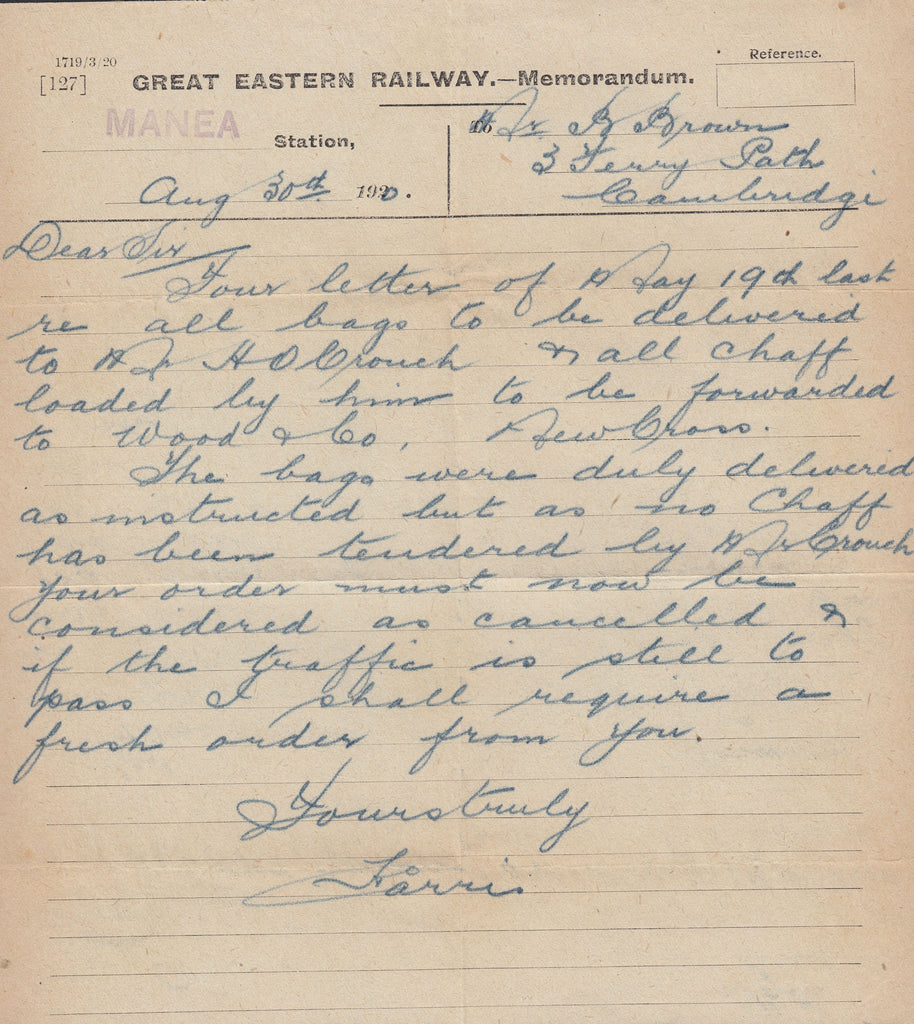 1719/3/20
[127]
Reference.
GREAT EASTERN RAILWAY.—Memorandum.
MANEA
Station,
To Mr B Brown
3 Ferry Path
Cambridge
Aug 30th 1920.
Dear Sir
Your letter of May 19th last
re all bags to be delivered
to Mr H O Crouch & all chaff
loaded by him to be forwarded
to Wood & Co, New Cross.
The bags were duly delivered
as instructed but as no Chaff
has been tendered by Mr Crouch
your order must now be
considered as cancelled &
if the traffic is still to
pass I shall require a
fresh order from you.
Yours truly